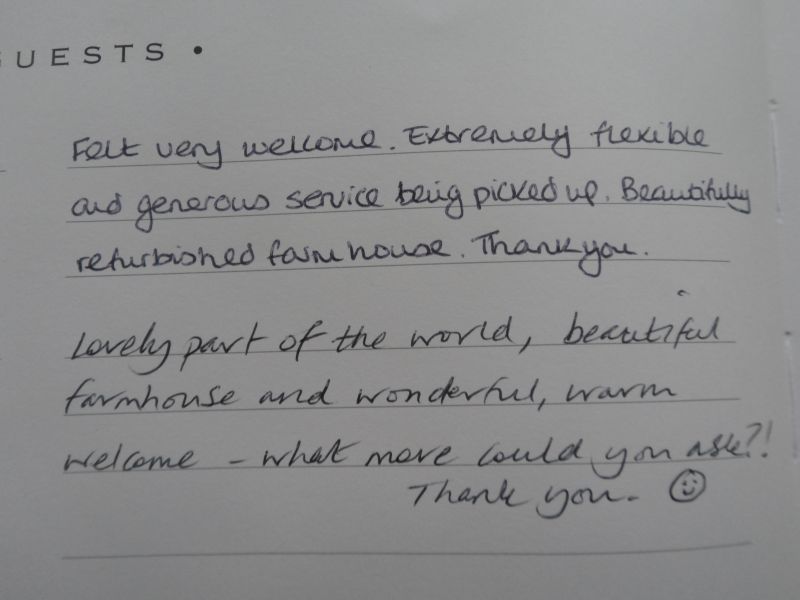 GUESTS •
Felt very welcome. Extremely flexible
and generous service being picked up. Beautifully
refurbished farmhouse. Thank you.
Lovely part of the world, beautiful
farmhouse and wonderful, warm
welcome – what more could you ask?!
Thank you. ☺